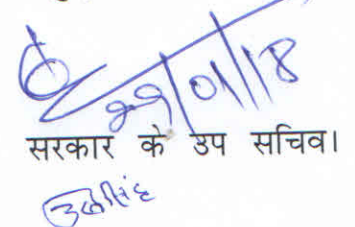 29/01/18
सरकार के उप सचिव।